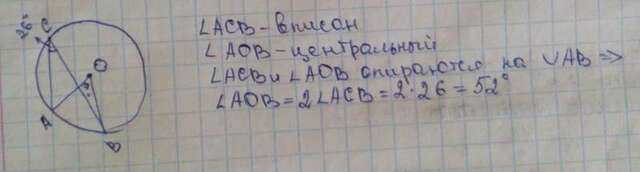 26°
C
O
A
B
∠ACB - вписан
∠AOB - центральный
∠ACB и ∠AOB опираются на ∪AB =>
∠AOB = 2∠ACB = 2·26 = 52°